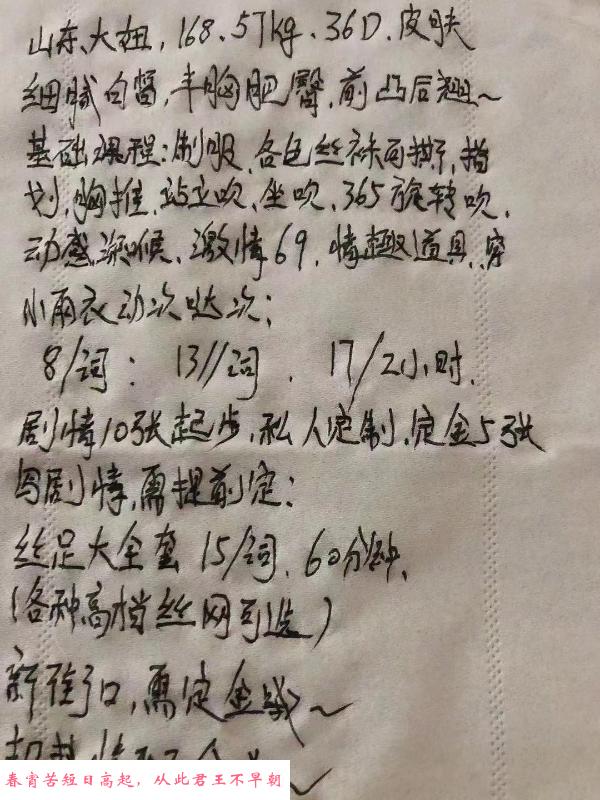 山东、大妞，168.57kg、36D.皮肤
细腻白皙，丰胸肥臀，前凸后翘～
基础课程：制服、各色丝袜可撕、指
划、胸推、站立吹、坐吹、365旋转吹、
动感深喉、激情69、情趣道具、穿
小雨衣动次哒次：
8/词：13//词、17/2小时.
剧情10张起步，私人定制、定金5张
写剧情，需提前定：
丝足大全套 15/词、60分钟、
（各种高档丝网可选）
新街口，需定金哦～
春宵苦短日高起，从此君王不早朝